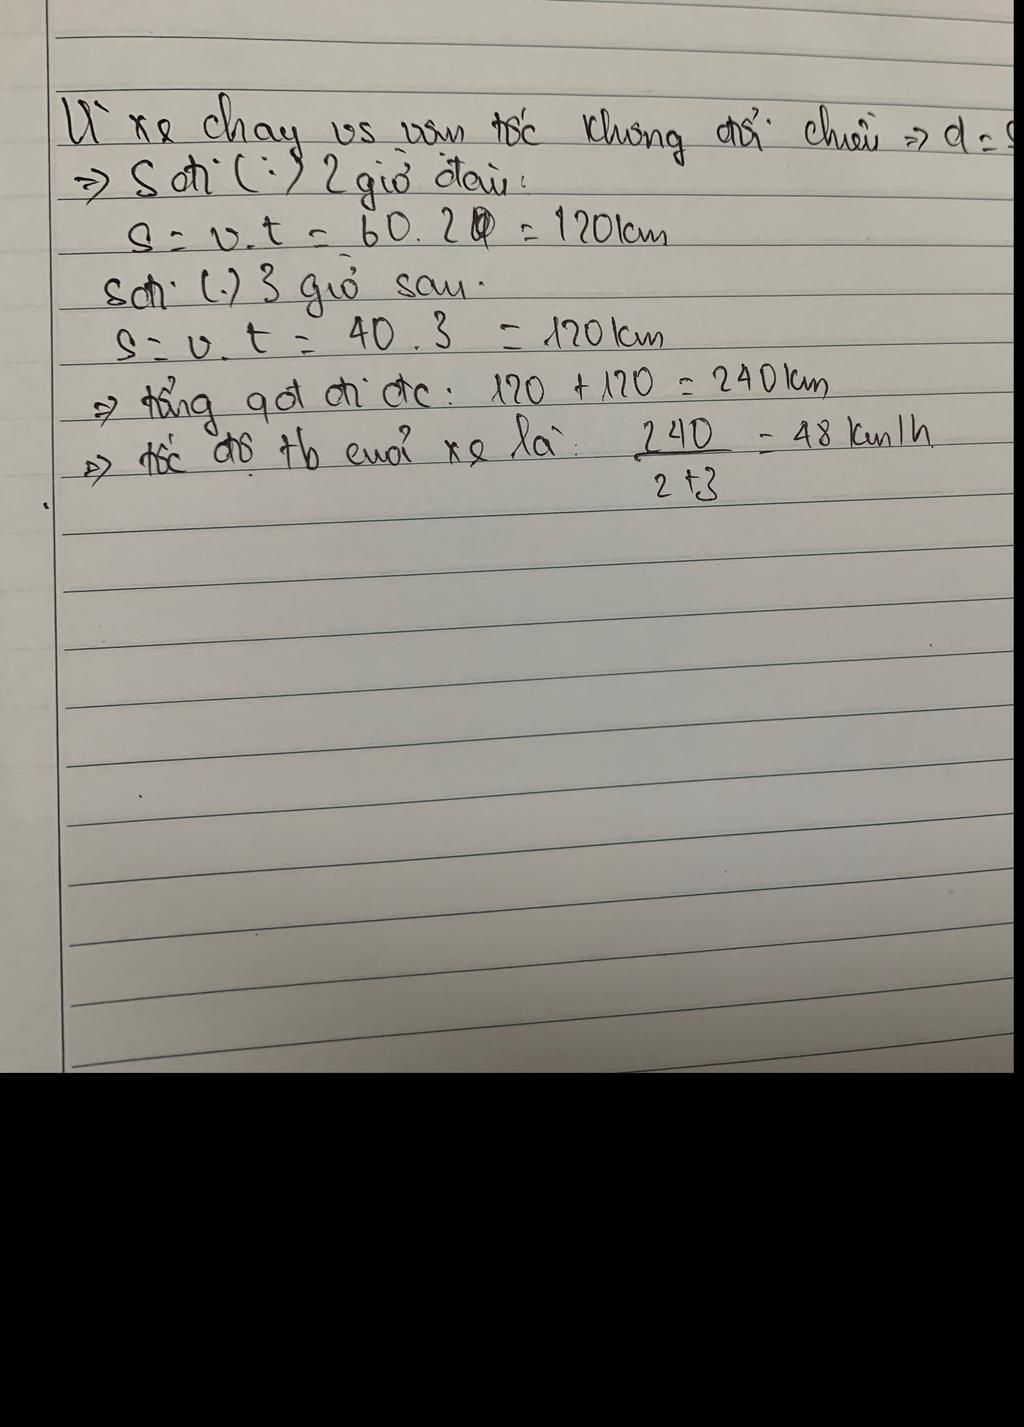 Vì xe chạy vs vận tốc không đổi chiều => d = S
=> S đi (.) 2 giờ đầu:
S = v.t = 60.2 = 120km
S đi (.) 3 giờ sau.
S = v.t = 40.3 = 120km
=> tổng qđ đi đc: 120 + 120 = 240km
=> tốc độ tb của xe là: 240/2+3 = 48 km/h